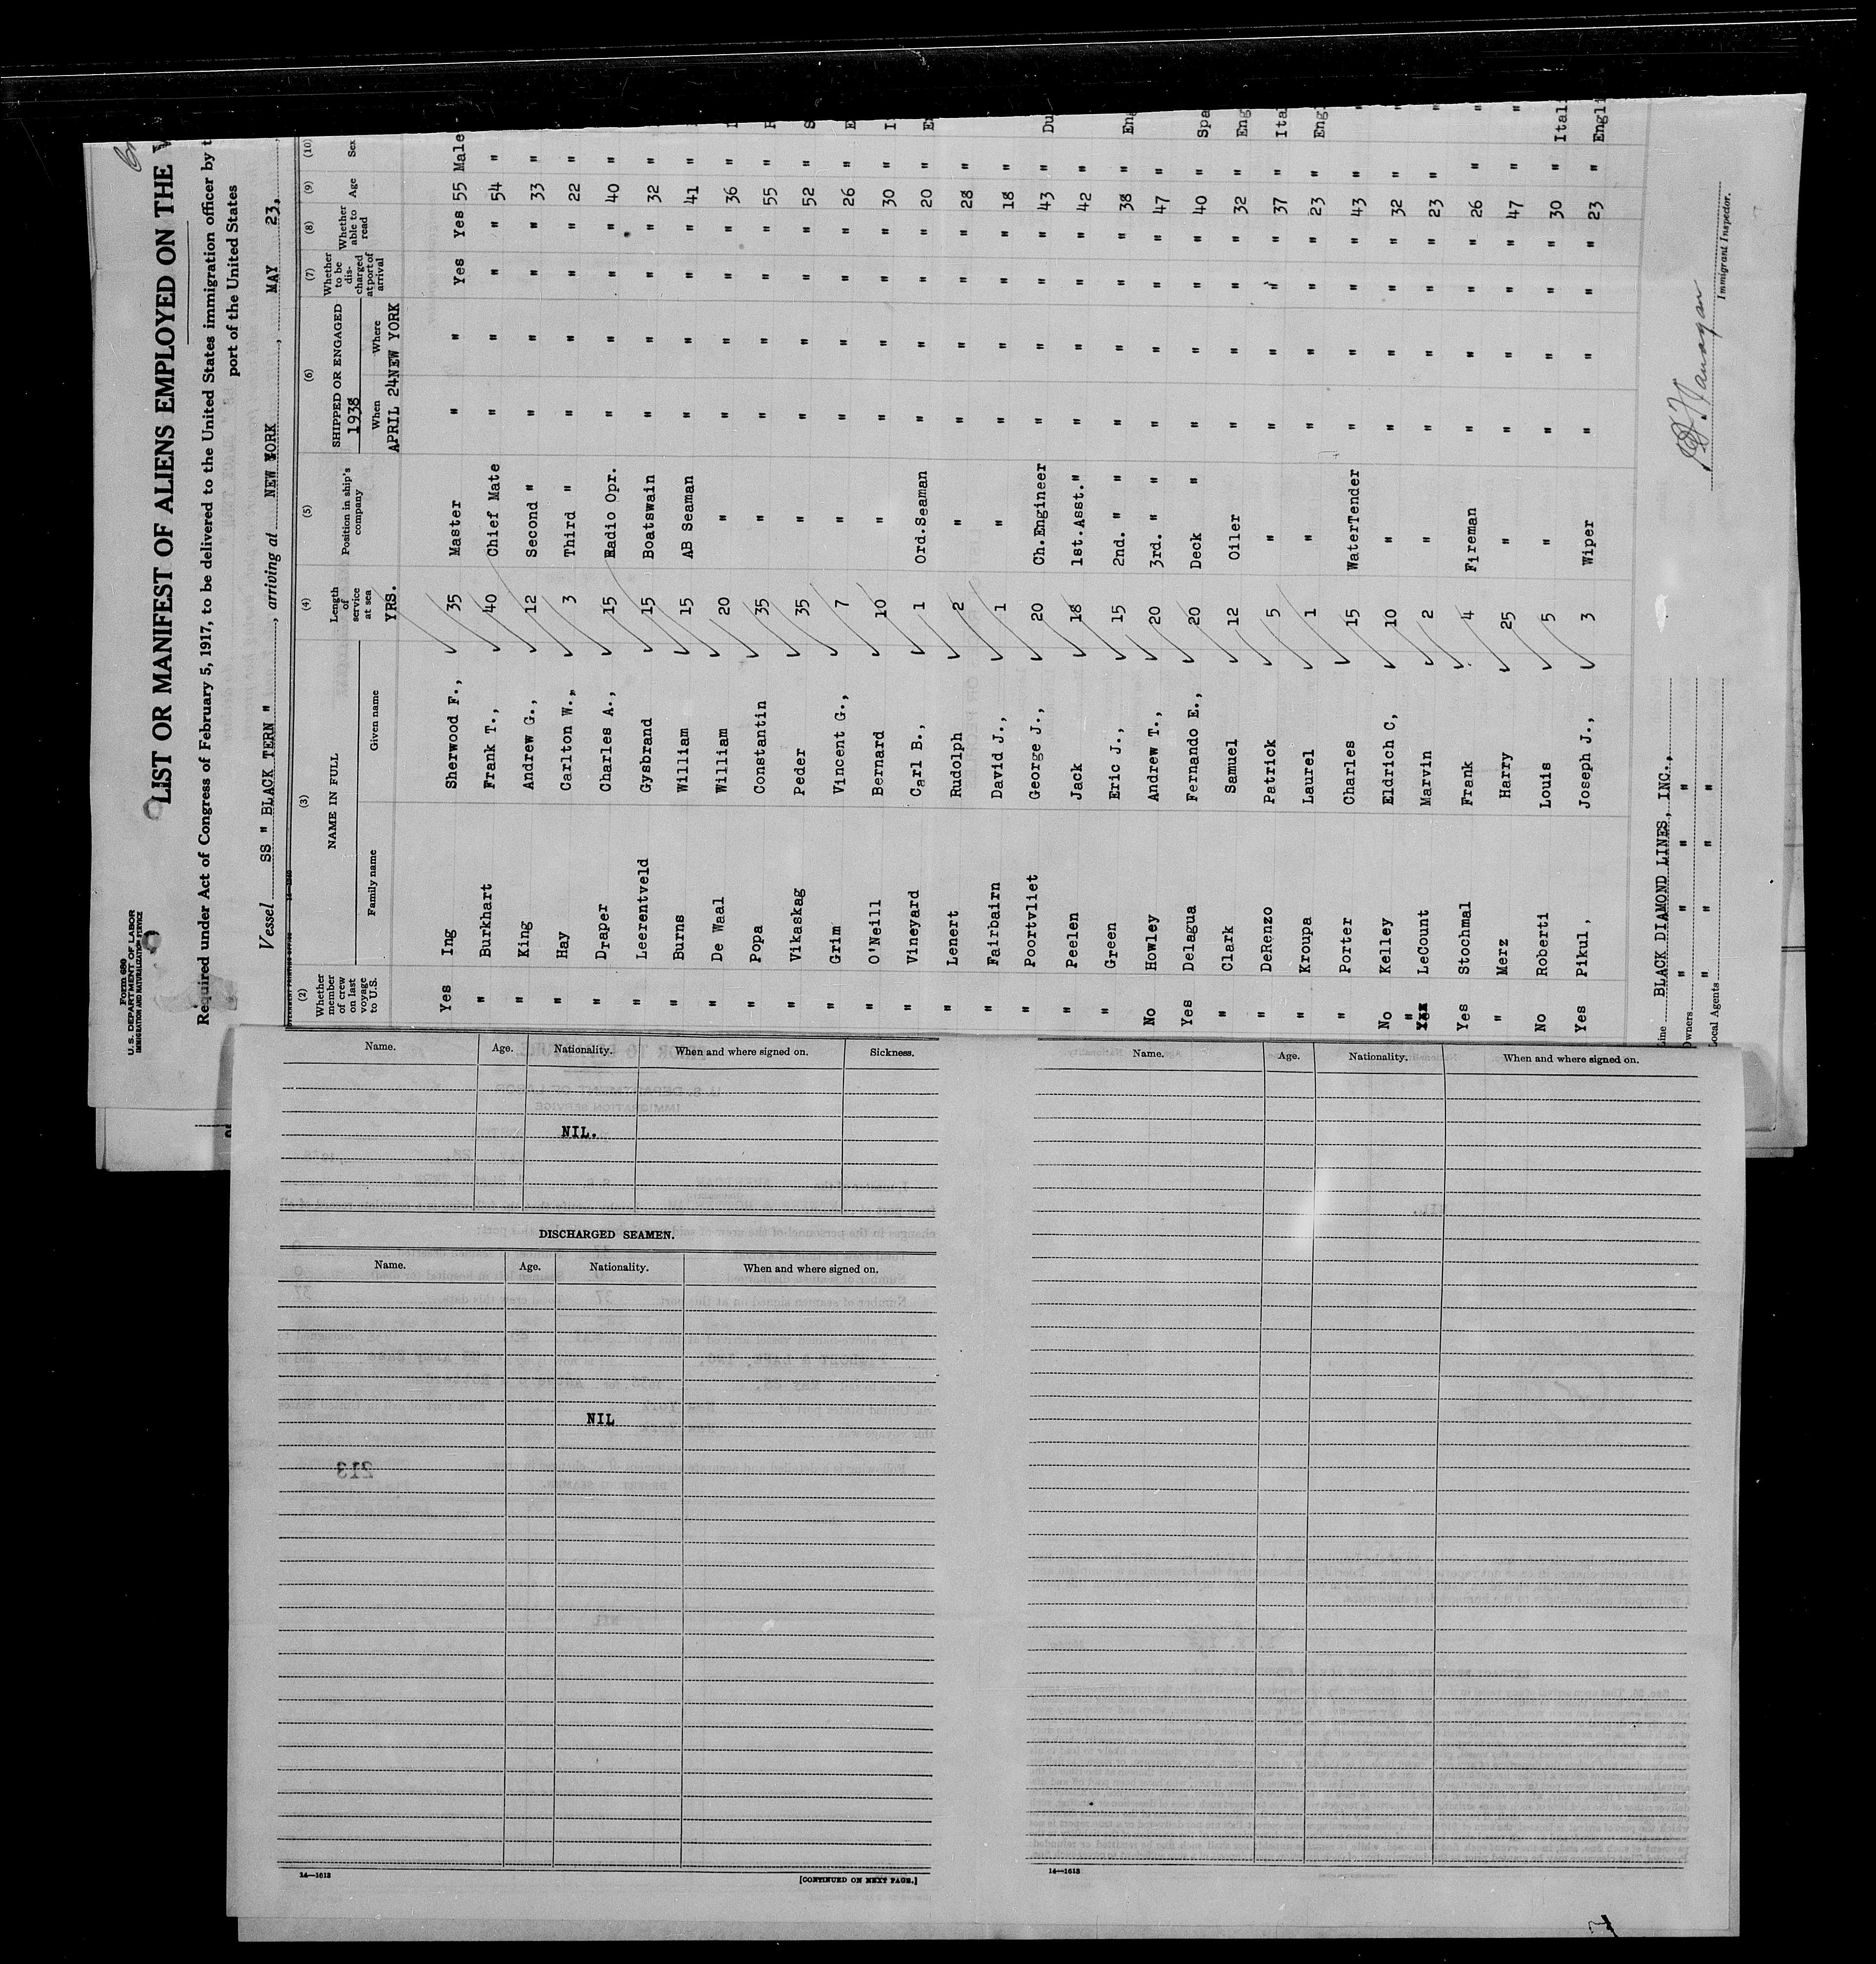 Form 680
U. S. DEPARTMENT OF LABOR
IMMIGRATION AND NATURALIZATION SERVICE
LIST OR MANIFEST OF ALIENS EMPLOYED ON THE
Required under Act of Congress of February 5, 1917, to be delivered to the United States immigration officer by t
port of the United States
Vessel SS " BLACK TERN ", arriving at NEW YORK, MAY 23,
(2) (3) (4) (5) (6) (7) (8) (9) (10)
Whether member of crew on last voyage to U.S. NAME IN FULL Family name Given name Length of service at sea Position in ship's company SHIPPED OR ENGAGED 1938 When Where Whether to be discharged at port of arrival Whether able to read Age Sex
YRS. APRIL 24 NEW YORK
Yes Ing Sherwood F., 35 Master " " Yes Yes 55 Male
" Burkhart Frank T., 40 Chief Mate " " " " 54 "
" King Andrew G., 12 Second " " " " " 33 "
" Hay Carlton W., 3 Third " " " " " 22 "
" Draper Charles A., 15 Radio Opr. " " " " 40 "
" Leerentveld Gysbrand 15 Boatswain " " " " 32 "
" Burns William 15 AB Seaman " " " " 41 "
" De Waal William 20 " " " " " 36 "
" Popa Constantin 35 " " " " " 55 "
" Vikaskag Peder 35 " " " " " 52 "
" Grim Vincent G., 7 " " " " " 26 "
" O'Neill Bernard 10 " " " " " 30 "
" Vineyard Carl B., 1 Ord.Seaman " " " " 20 "
" Lenert Rudolph 2 " " " " " 28 "
" Fairbairn David J., 1 " " " " " 18 "
" Poortvliet George J., 20 Ch.Engineer " " " " 43 " Du
" Peelen Jack 18 1st.Asst." " " " " 42 "
" Green Eric J., 15 2nd. " " " " " " 38 " Eng
No Howley Andrew T., 20 3rd. " " " " " " 47 "
Yes Delagua Fernando E., 20 Deck " " " " " 40 " Spa
" Clark Samuel 12 Oiler " " " " 32 " Eng
" DeRenzo Patrick 5 " " " " " 37 " Ita
" Kroupa Laurel 1 " " " " " 23 " Eng
" Porter Charles 15 WaterTender " " " " 43 " "
No Kelley Eldrich C, 10 " " " " " 32 " "
" LeCount Marvin 2 " " " " " 23 " "
Yes Stochmal Frank 4 Fireman " " " " 26 " "
" Merz Harry 25 " " " " " 47 " "
No Roberti Louis 5 " " " " " 30 " Itali
Yes Pikul, Joseph J., 3 Wiper " " " " 23 " Engli
Line BLACK DIAMOND LINES, INC.,
Owners " " " "
Local Agents " " "
Immigrant Inspector.
Name. Age. Nationality. When and where signed on. Sickness.
NIL.
DISCHARGED SEAMEN.
Name. Age. Nationality. When and where signed on.
NIL
213
14—1613
[CONTINUED ON NEXT PAGE.]
Name. Age. Nationality. When and where signed on.
14—1613